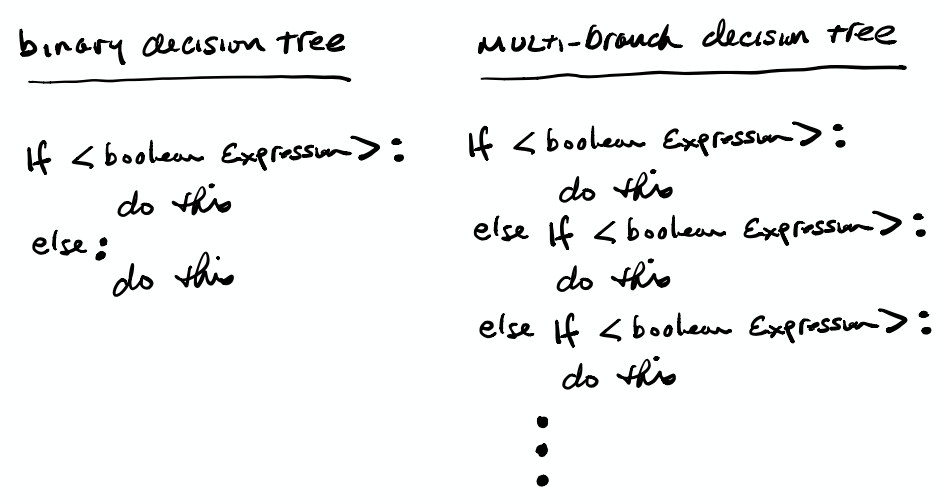 binary decision tree
If < boolean Expression>:
do this
else:
do this
MULTI-branch decision tree
If < boolean Expression>:
do this
else If < boolean Expression>:
do this
else If < boolean Expression>:
do this